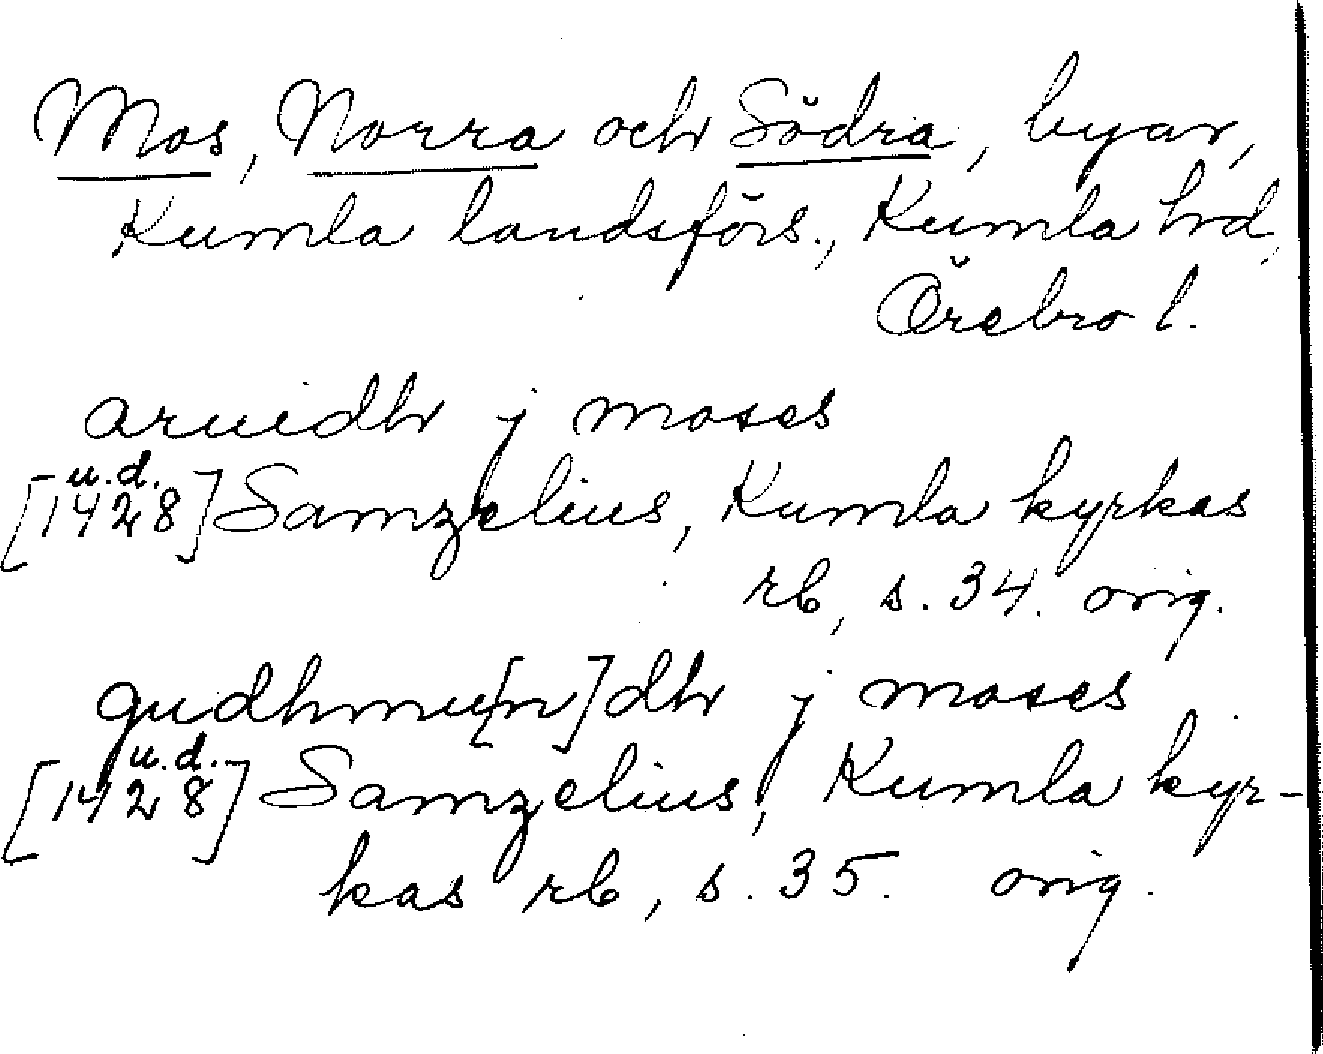 Mos, Norra och Södra, byar,
Kumla landsförs., Kumla hd,
Örebro l.
aruidh j moses
u.d.
[1428] Samzelius, Kumla kyrkas
rb, s. 34. orig.
gudhmu[n]dh j moses
u.d.
[1428] Samzelius, Kumla kyr-
kas rb, s. 35. orig.